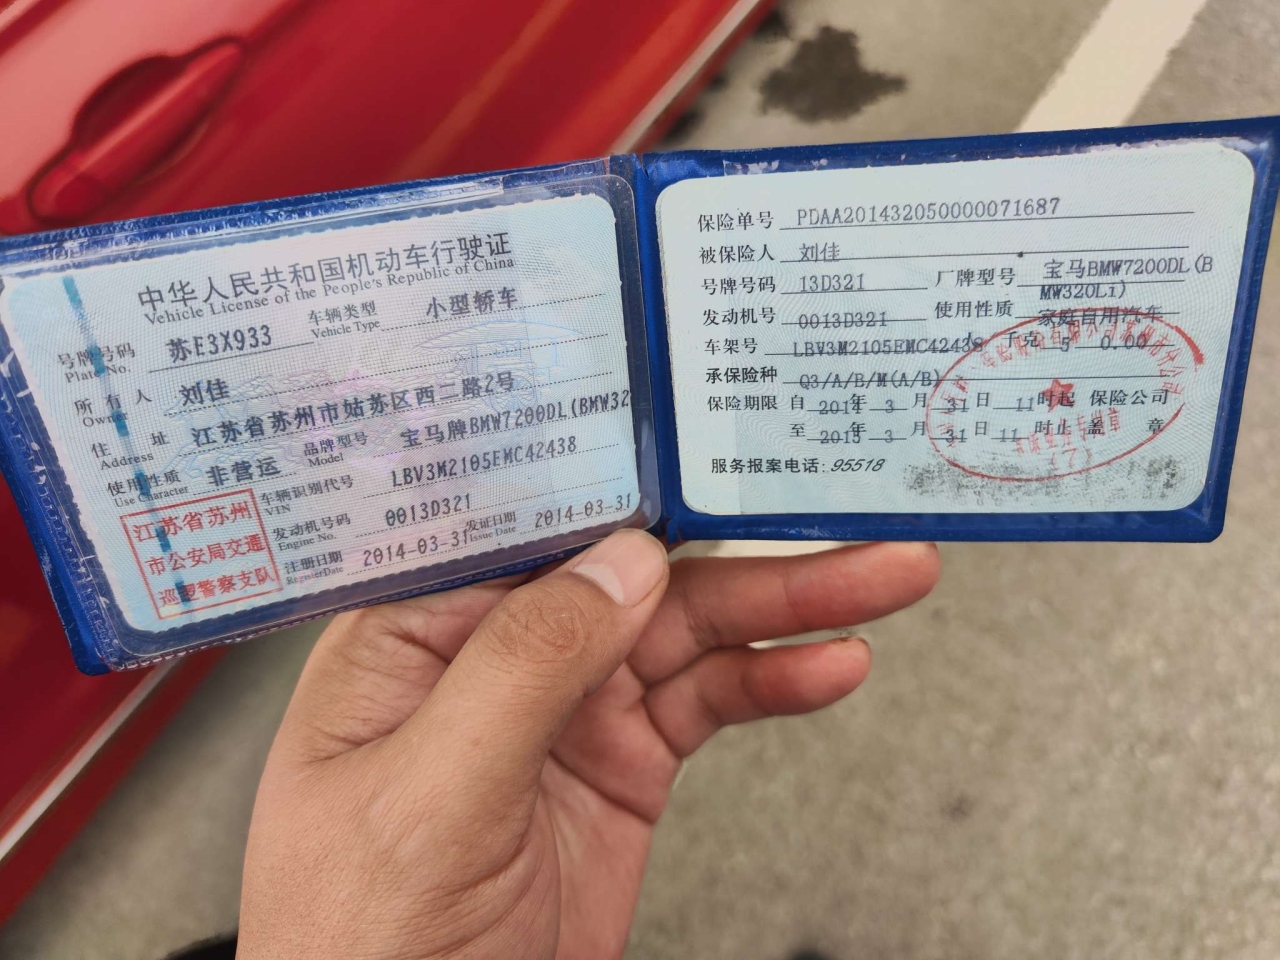 中华人民共和国机动车行驶证
Vehicle License of the People's Republic of China
号牌号码 苏E3X933 车辆类型 小型轿车
Plate No. Vehicle Type
所有人 刘佳
Owner
住址 江苏省苏州市姑苏区西二路2号
Address
使用性质 非营运 品牌型号 宝马牌BMW7200DL(BMW32
Use Character Model
车辆识别代号 LBV3M2105EMC42438
VIN
发动机号码 0013D321
Engine No.
注册日期 2014-03-31 发证日期 2014-03-31
RegisterDate Issue Date
江苏省苏州
市公安局交通
巡逻警察支队
保险单号 PDAA201432050000071687
被保险人 刘佳
号牌号码 13D321 厂牌型号 宝马BMW7200DL(B
MW320Li)
发动机号 0013D321 使用性质 家庭自用汽车
车架号 LBV3M2105EMC42438 人 千克 5 0.00
承保险种 Q3/A/B/M(A/B)
保险期限 自 2014 年 3 月 31 日 11 时起 保险公司
至 2015 年 3 月 31 日 11 时止 盖章
服务报案电话: 95518